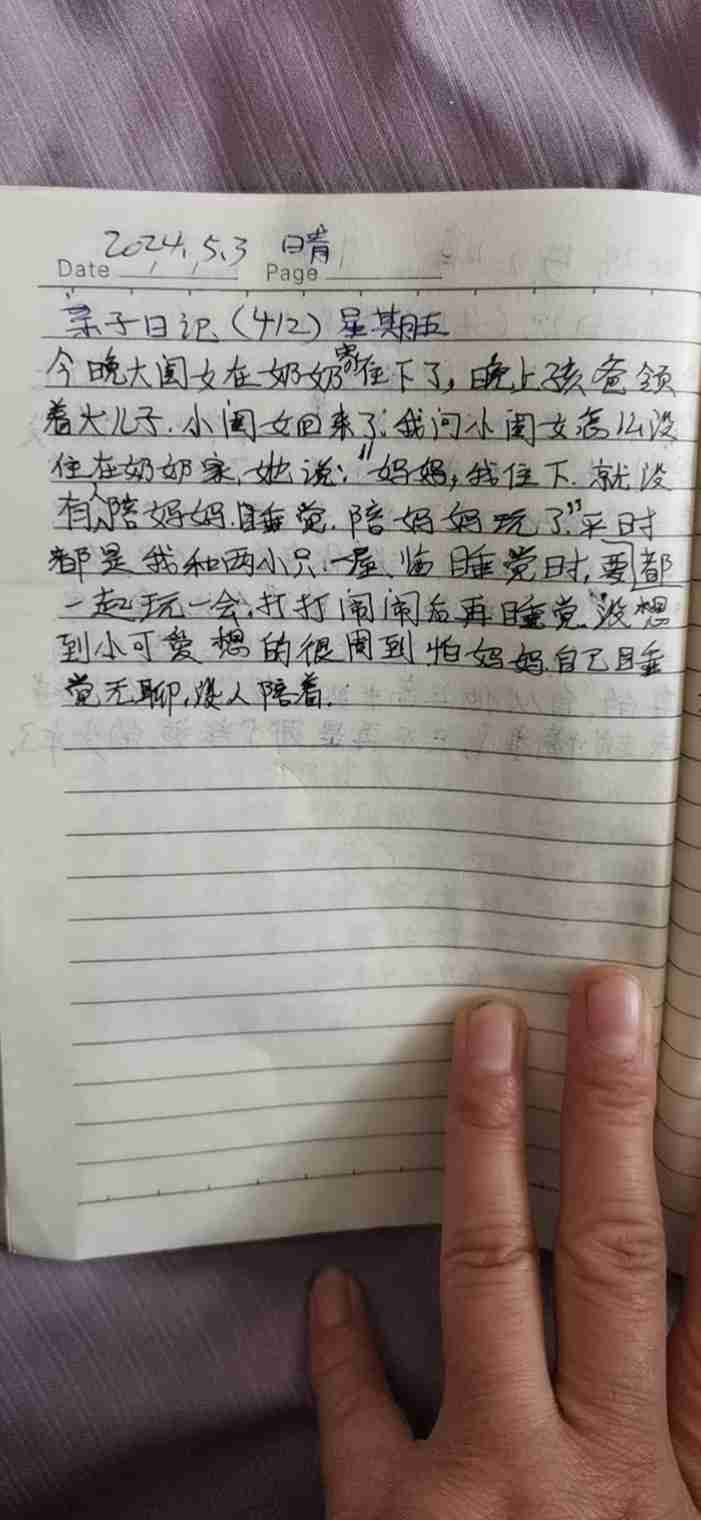 2024.5.3 晴
Date Page
亲子日记(412)星期五
今晚大闺女在奶奶家住下了,晚上孩爸领
着大儿子.小闺女回来了.我问小闺女怎么没
住在奶奶家,她说:"妈妈,我住下.就没
有人陪妈妈.睡觉.陪妈妈玩了."平时
都是我和两小只.一屋、临睡觉时,要都
一起玩一会,打打闹闹后再睡觉.没想
到小可爱想的很周到怕妈妈.自己睡
觉无聊,没人陪着.